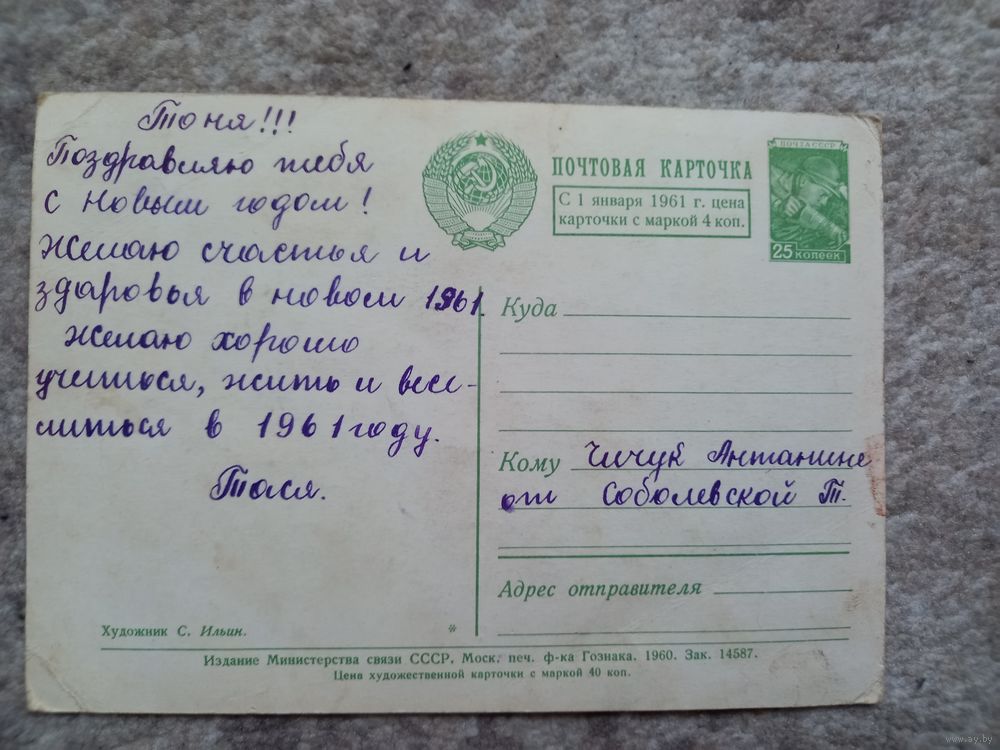 Тоня!!!
Поздравляю тебя
с новым годом!
Желаю счастья и
здоровья в новом 1961.
Желаю хорошо
учиться, жить и весе-
литься в 1961 году.
Тася.
ПОЧТОВАЯ КАРТОЧКА
С 1 января 1961 г. цена
карточки с маркой 4 коп.
ПОЧТА СССР
25 копеек
Куда
Кому Чичук Антанине
от Соболевской Т.
Адрес отправителя
Художник С. Ильин.
*
Издание Министерства связи СССР. Моск. печ. ф-ка Гознака. 1960. Зак. 14587.
Цена художественной карточки с маркой 40 коп.
www.ay.by